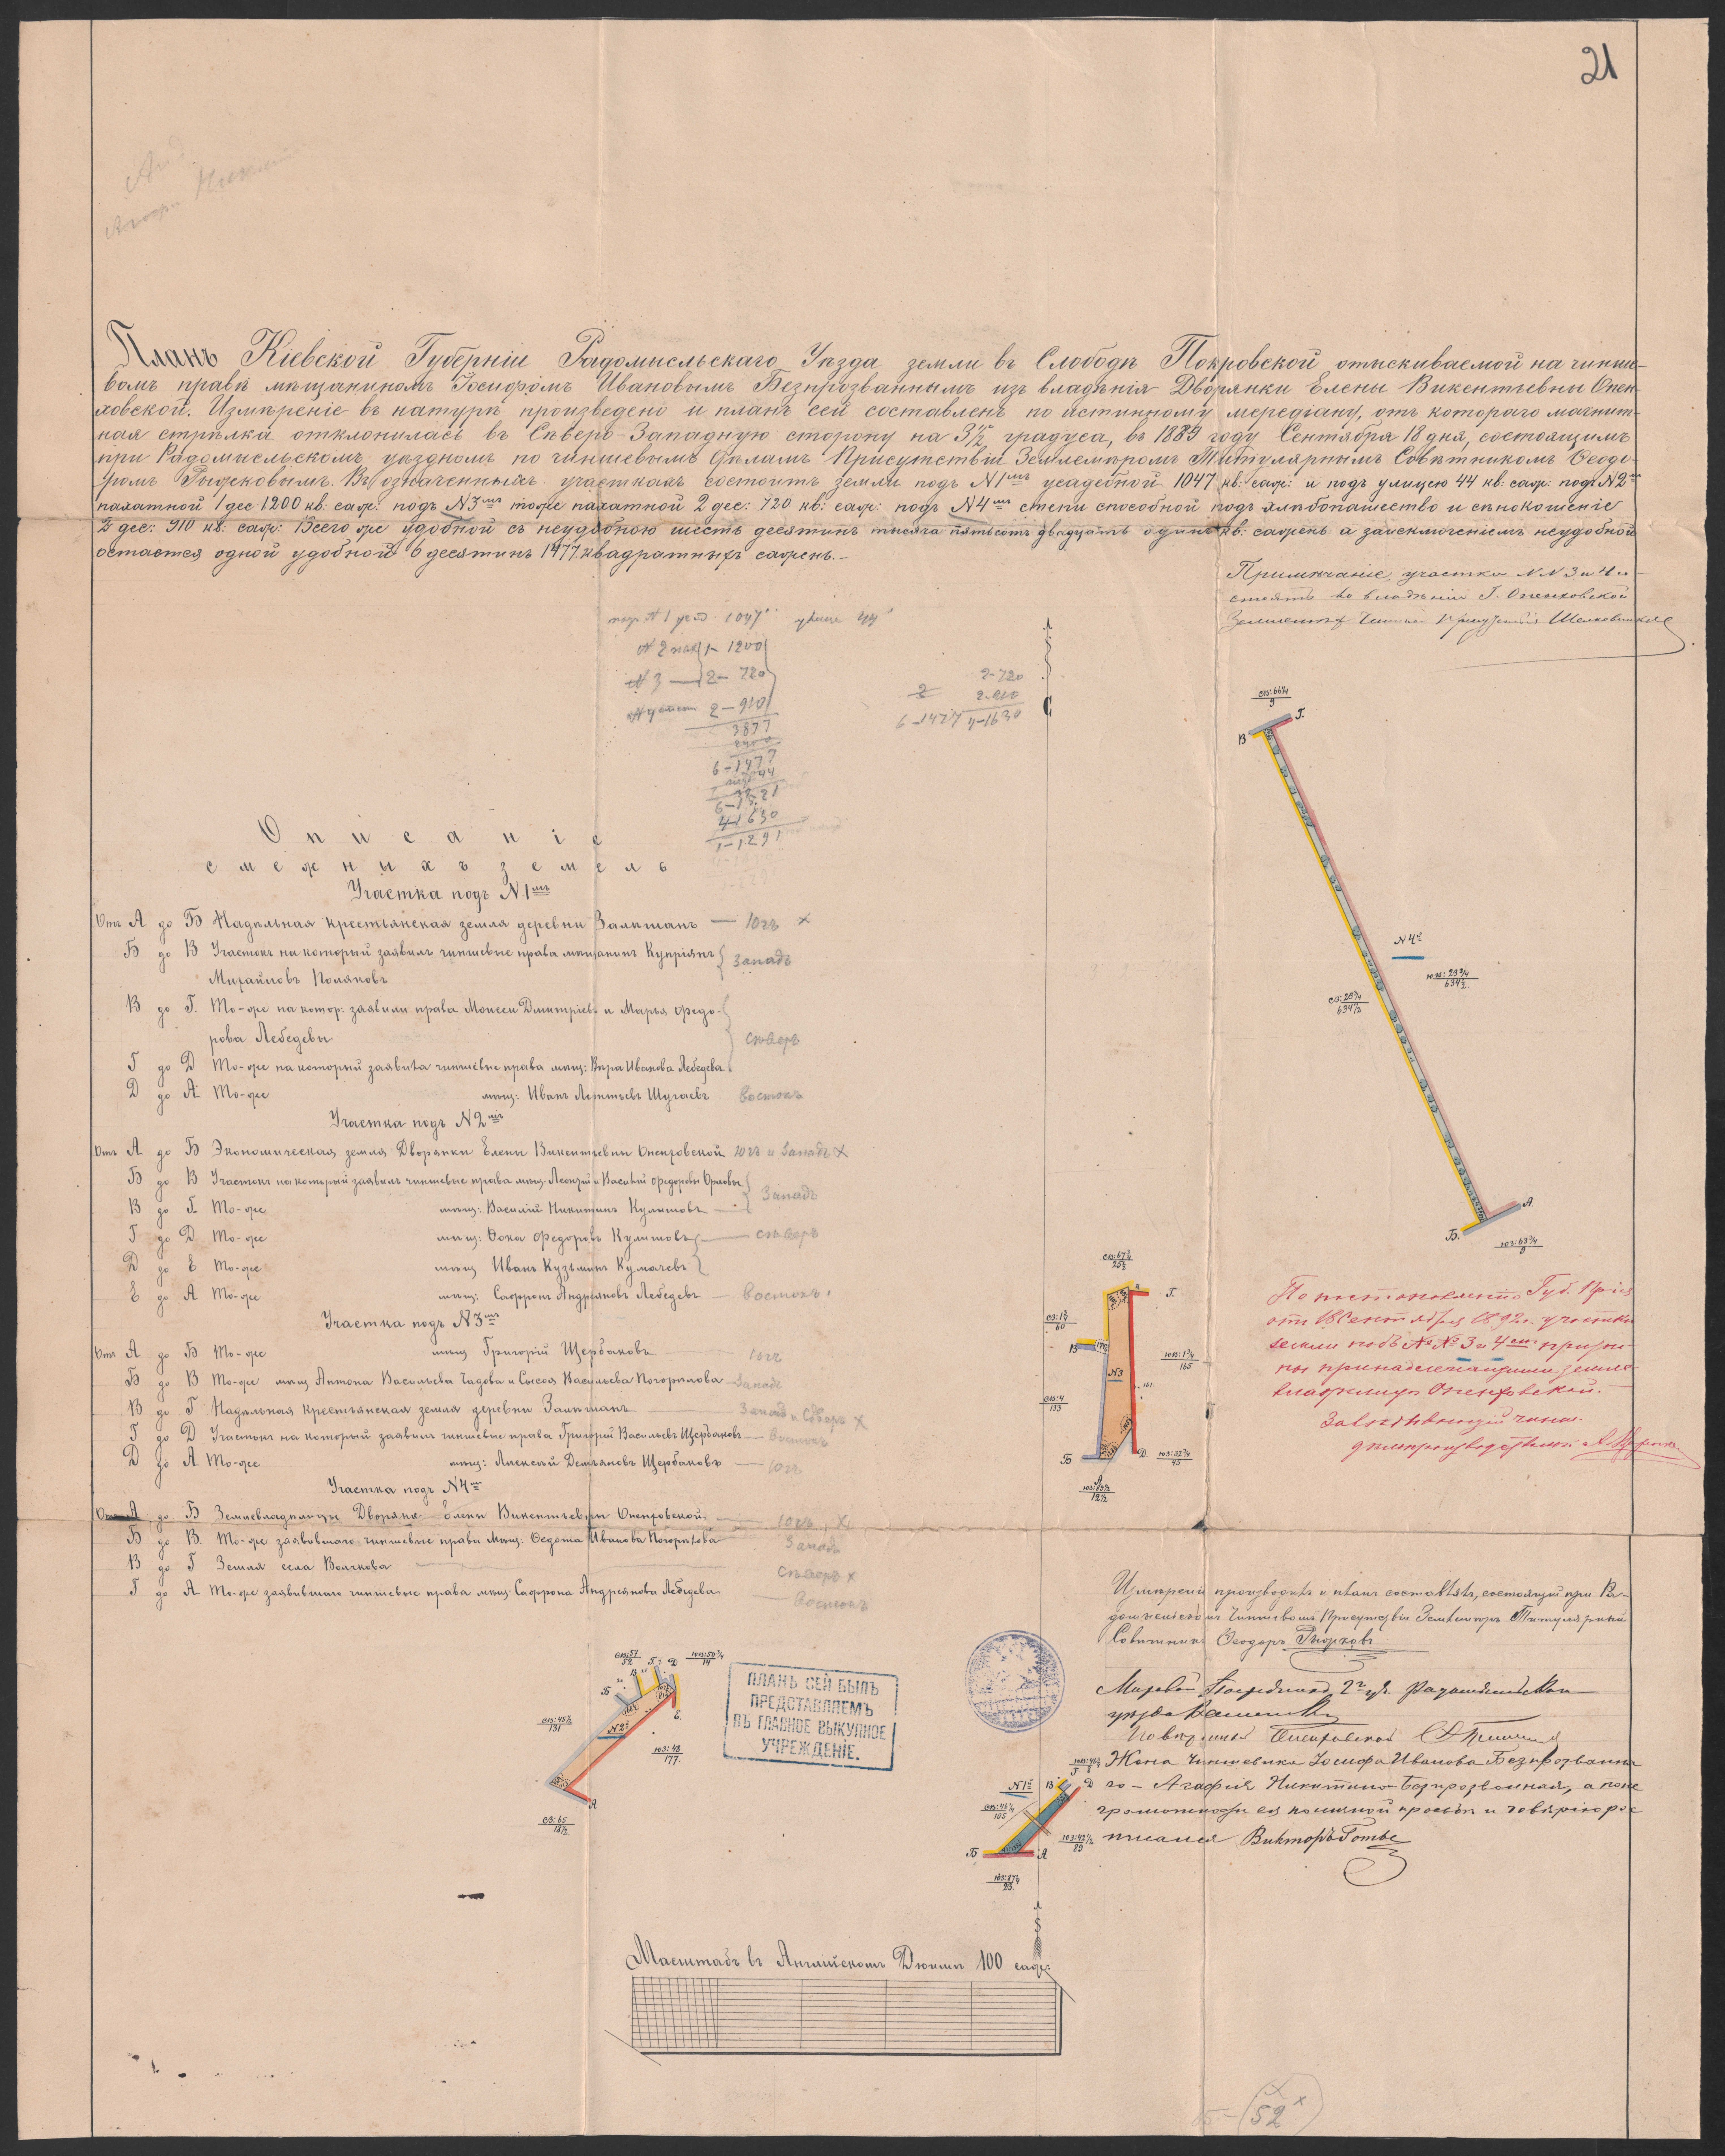 21
Планъ Кіевской Губерніи Радомысльскаго Уѣзда земли въ Слободѣ Покровской отыскиваемой на чинше-
вомъ правѣ мѣщаниномъ Іосифомъ Ивановымъ Безпрозваннымъ изъ владѣнія Дворянки Елены Викентьевны Опен-
ховской. Измѣреніе въ натурѣ произведено и планъ сей составленъ по истинному меридіану, отъ котораго магнит-
ная стрѣлка отклонилась въ Сѣверо-Западную сторону на 3½ градуса, въ 1889 году Сентября 18 дня, состоящимъ
при Радомысльскомъ уѣздномъ по чиншевымъ дѣламъ Присутствіи Землемѣромъ Титулярнымъ Совѣтникомъ Ѳеодо-
ромъ Рыжковымъ. Въ означенныхъ участкахъ состоитъ земли подъ N1мъ усадебной 1047 кв: саж: и подъ улицею 44 кв: саж: подъ N2мъ
пахатной 1 дес 1200 кв: саж: подъ N3мъ тоже пахатной 2 дес: 720 кв: саж: подъ N4мъ степи способной подъ хлѣбопашество и сѣнокошеніе
2 дес: 910 кв: саж: Всего же удобной съ неудобною шесть десятинъ тысяча пятьсотъ двадцать одинъ кв: сажень а заисключеніемъ неудобной
остается одной удобной 6 десятинъ 1477 квадратныхъ сажень.-
Примѣчаніе, участки N N 3 и 4 со-
стоятъ во владѣніи Г. Опенховской
1047
N 2 пах 1- 1200
N 3 — 2- 720
2-910
3877
6-1477
44
6-1521
4-1630
1-1291
2-720
2-910
4-1630
С
Описаніе
смежныхъ земель
Участка подъ N1мъ
Отъ А до Б Надѣльная крестьянская земля деревни Залышанъ — Югъ х
Б до В Участокъ на который заявилъ чиншевые права мѣщанинъ Купріянъ Западъ
Михайловъ Поляковъ
В до Г. То-же на котор: заявили права Моисей Дмитріевъ и Марья Федо-
рова Лебедевы сѣверъ
Г до Д То-же на который заявила чиншевые права мѣщ: Вѣра Иванова Лебедева
Д до А То-же мѣщ: Иванъ Леонтьевъ Шугаевъ востокъ
Участка подъ N2мъ
Отъ А до Б Экономическая земля Дворянки Елены Викентьевны Опенховской Югъ и Западъ х
Б до В Участокъ на который заявилъ чиншевые права мѣщ: Леонтій и Василій Федоровы Орловы
В до Г. То-же мѣщ: Василій Никитинъ Кулешовъ Западъ
Г до Д То-же мѣщ: Фока Федоровъ Кулешовъ — сѣверъ
Д до Е То-же мѣщ Иванъ Кузьминъ Кумачевъ
Е до А То-же мѣщ: Сафронъ Андреяновъ Лебедевъ — Востокъ
Участка подъ N3мъ
Отъ А до Б То-же мѣщ Григорій Щербаковъ — Югъ
Б до В То-же мѣщ Антона Васильева Чадова и Сысоя Васильева Погорѣлова — Западъ
В до Г Надѣльная крестьянская земля деревни Залышанъ — Западъ и Сѣверъ х
Г до Д Участокъ на который заявилъ чиншевые права Григорій Васильевъ Щербаковъ — Востокъ
Д до А То-же мѣщ: Алексѣй Демьяновъ Щербаковъ — Югъ
Участка подъ N4мъ
Отъ А до Б Землевладѣлицы Дворянки Елены Викентьевны Опенховской — Югъ х
Б до В. То-же заявившаго чиншевые права мѣщ: Федота Иванова Погорѣлова Западъ
В до Г Земля села Волчкова — Сѣверъ х
Г до А То-же заявившаго чиншевые права мѣщ: Сафрона Андреянова Лебедева — Востокъ
СВ:66¼
9
В Г.
N4й
ЮВ:29¾
634½
СЗ:29¾
634½
А.
Б.
ЮЗ:63¾
9
СВ:67½
25½
Г.
СЗ:1¾
60
В
N3
ЮВ:1¾
165
СВ:4
133
Б Д
ЮЗ:32¾
45
А
12½
По постановленію Губ. Прис.
отъ 18 Сентября 1892 г. участки
земли подъ №№ 3 и 4 мъ призна-
ны принадлежащими земле-
владѣлицѣ Опенховской.
Завѣдывающій чинш.
дѣлопроизводствомъ
Измѣреніе производилъ и планъ составлялъ, состоящій при Ра-
домысльскомъ Чиншевомъ Присутствіи Землемѣръ Титулярный
Совѣтникъ Ѳеодоръ Рыжковъ
Мировой Посредникъ 2го уч. Радомысльскаго
уѣзда
Повѣренный Опенховской
Жена чиншевика Іосифа Иванова Безпрозванна-
го - Агафія Никитина Безпрозванная, а по не
грамотности ея по личной просьбѣ и довѣрію рос
писался Викторъ Готье
СВ:57
52
ЮВ:50¼
14
Б В Г. Д
Е.
N2й
СВ:45½
131
ЮЗ:48
177
А
СЗ:65
18½
ПЛАНЪ СЕЙ БЫЛЪ
ПРЕДСТАВЛЯЕМЪ
ВЪ ГЛАВНОЕ ВЫКУПНОЕ
УЧРЕЖДЕНІЕ.
N1й
В Г Д
СВ:46¼
105
ЮЗ:42½
89
Б А
ЮЗ:87¼
23
Масштабъ въ Англійскомъ Дюймѣ 100 саж:
52 х